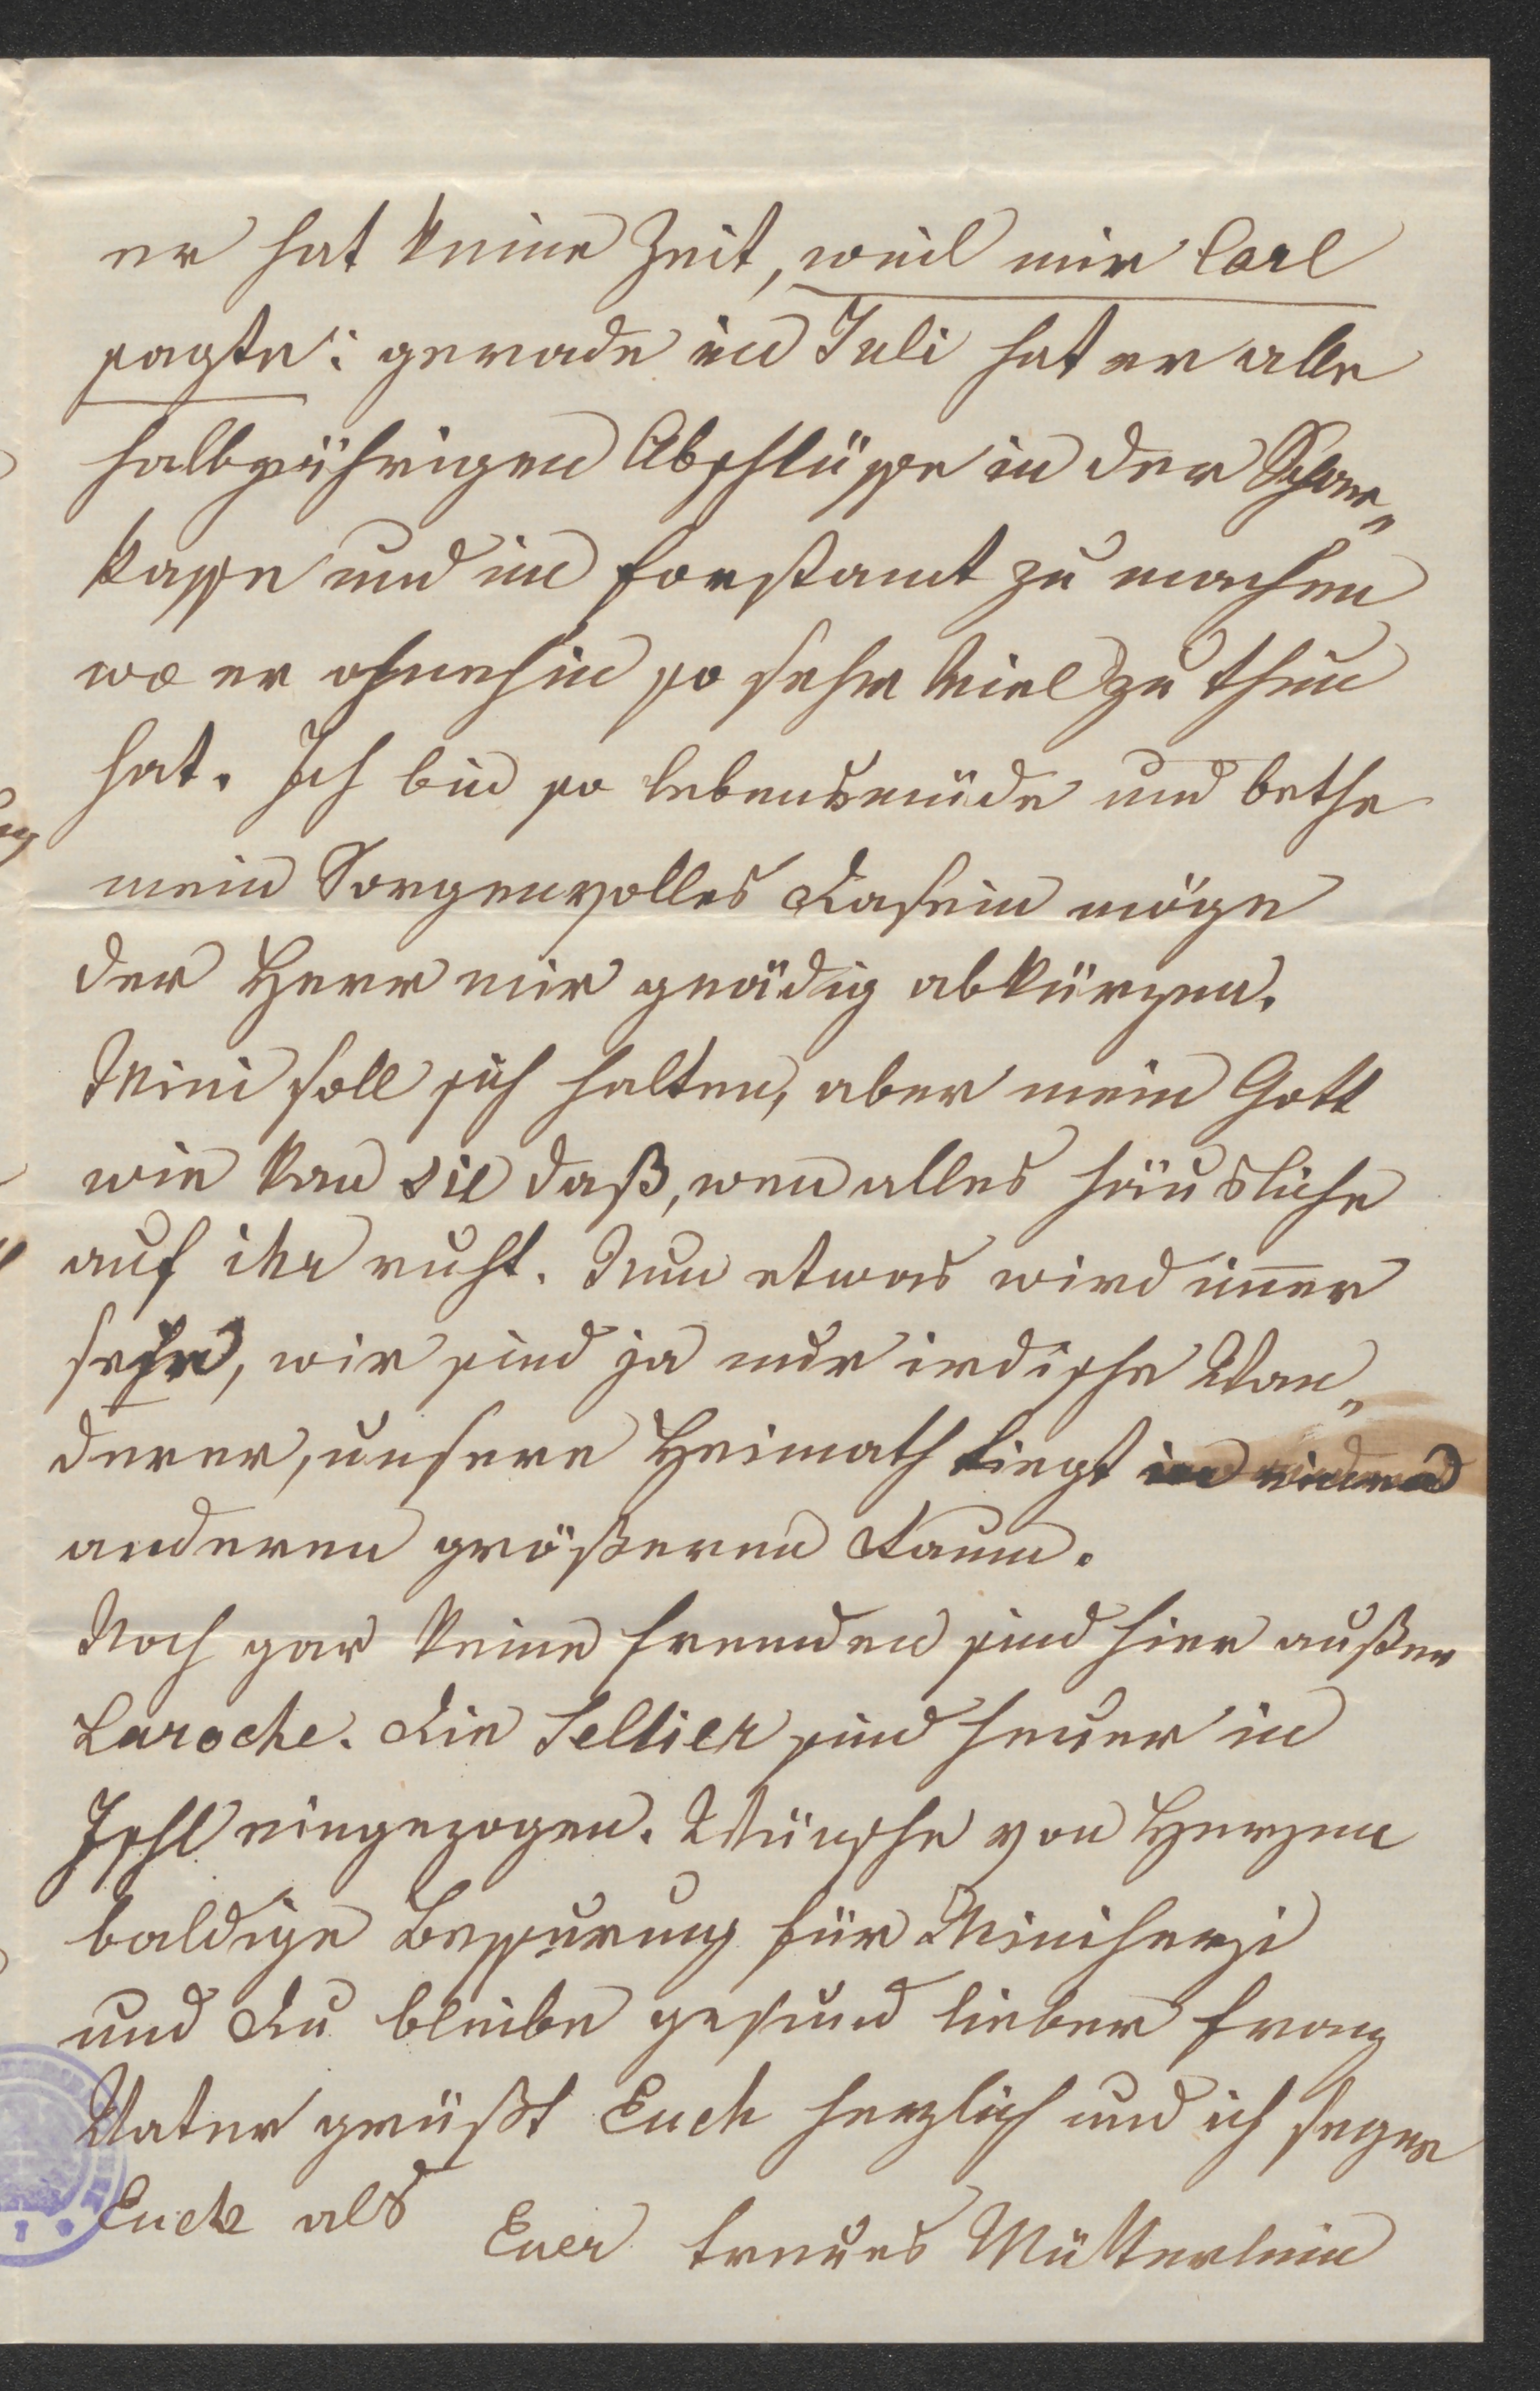 er hat keine Zeit, weil mir Carl
sagte: gerade im Juli hat er alle
halbjährigen Abschlüsse in der Spar„
kasse und im Forstamt zu machen
wo er ohnehin so sehr viel zu thun
hat. Ich bin so lebensmüde und bethe
mein Sorgenvolles Dasein möge
der Herr mir gnädig abkürzen.
Mini soll sich halten, aber mein Gott
wie kan sie daß, wen alles häusliche
auf ihr ruht. Nun etwas wird im̅er
sein, wir sind ja nur irdische Wan„
derer, unsere Heimath liegt im
anderen größeren Raum.
Noch gar keine Fremden sind hier außer
Laroche. Die Sellier sind heuer in
Ischl eingezogen. Wünsche von Herzen
baldige Besserung für Miniherzi
und Du bleibe gesund lieber Franz
Vater grüßt Euch herzlich und ich segne
Euch als Euer treues Mütterlein